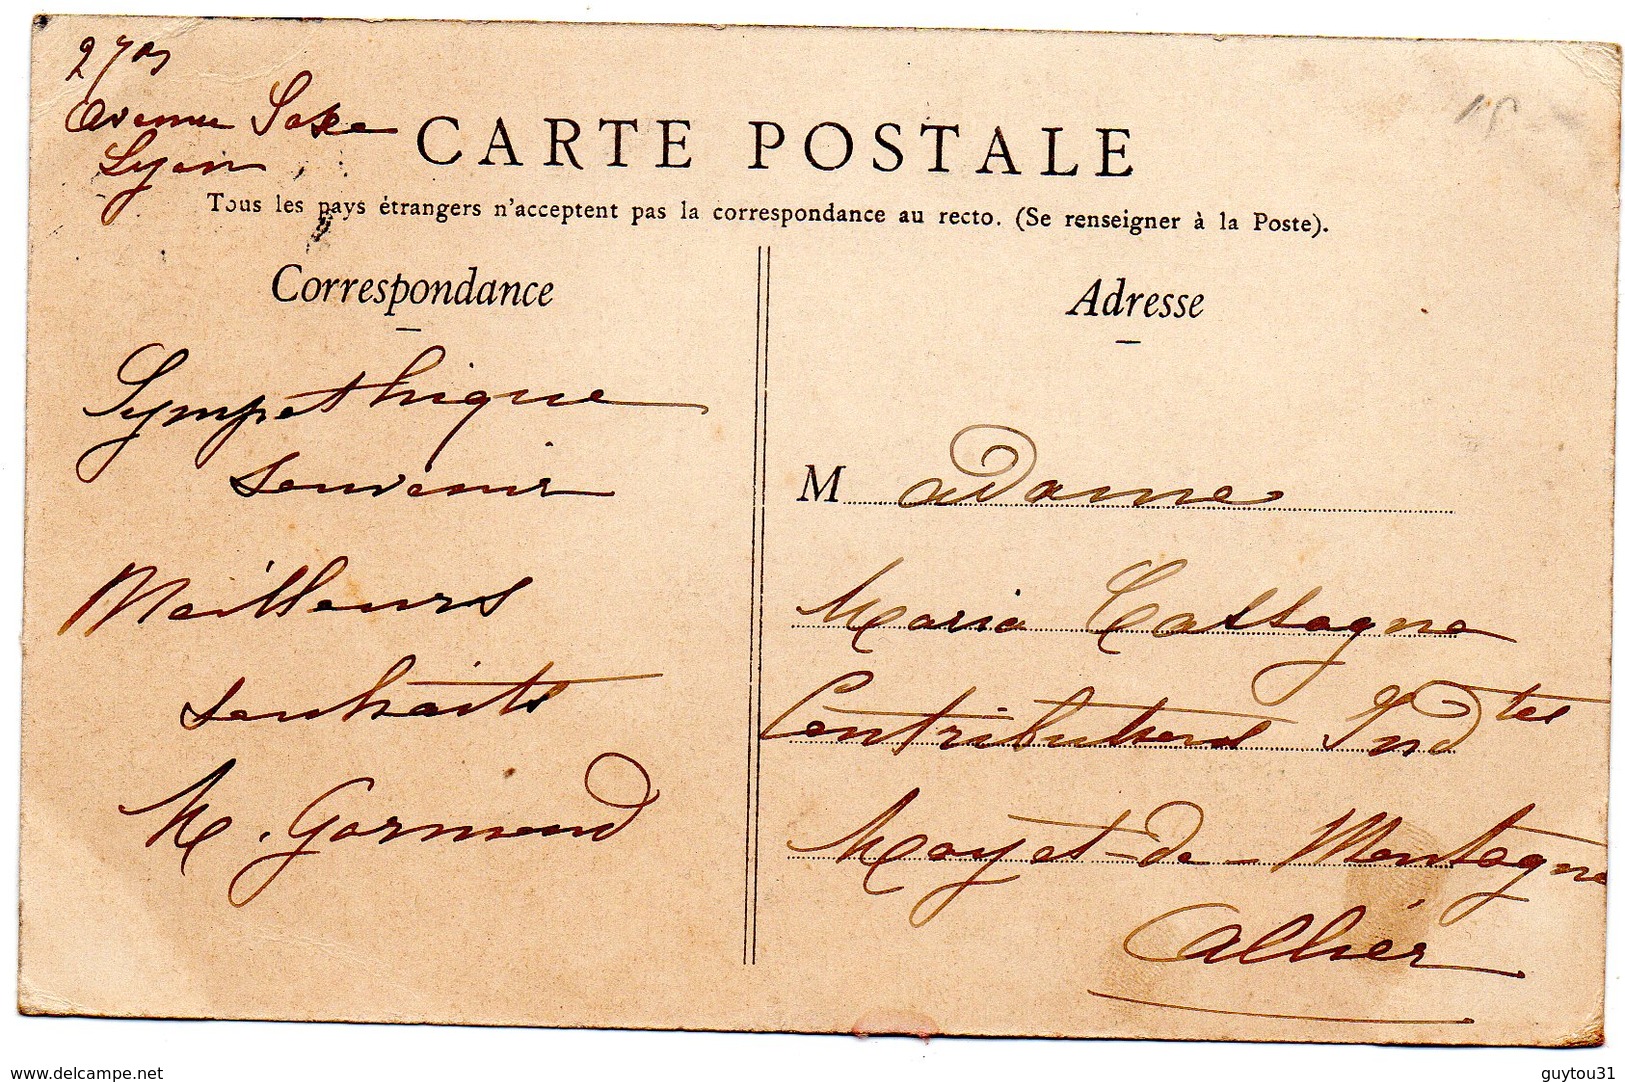 Avenue Saxe
Lyon
CARTE POSTALE
Tous les pays étrangers n'acceptent pas la correspondance au recto. (Se renseigner à la Poste).
Correspondance
Adresse
Sympathique
souvenir
Meilleurs
souhaits
M. Gormond
Madame
Maria Cassagne
Contributions Indtes
Mayet-de-Montagne
Allier
delcampe.net
guytou31